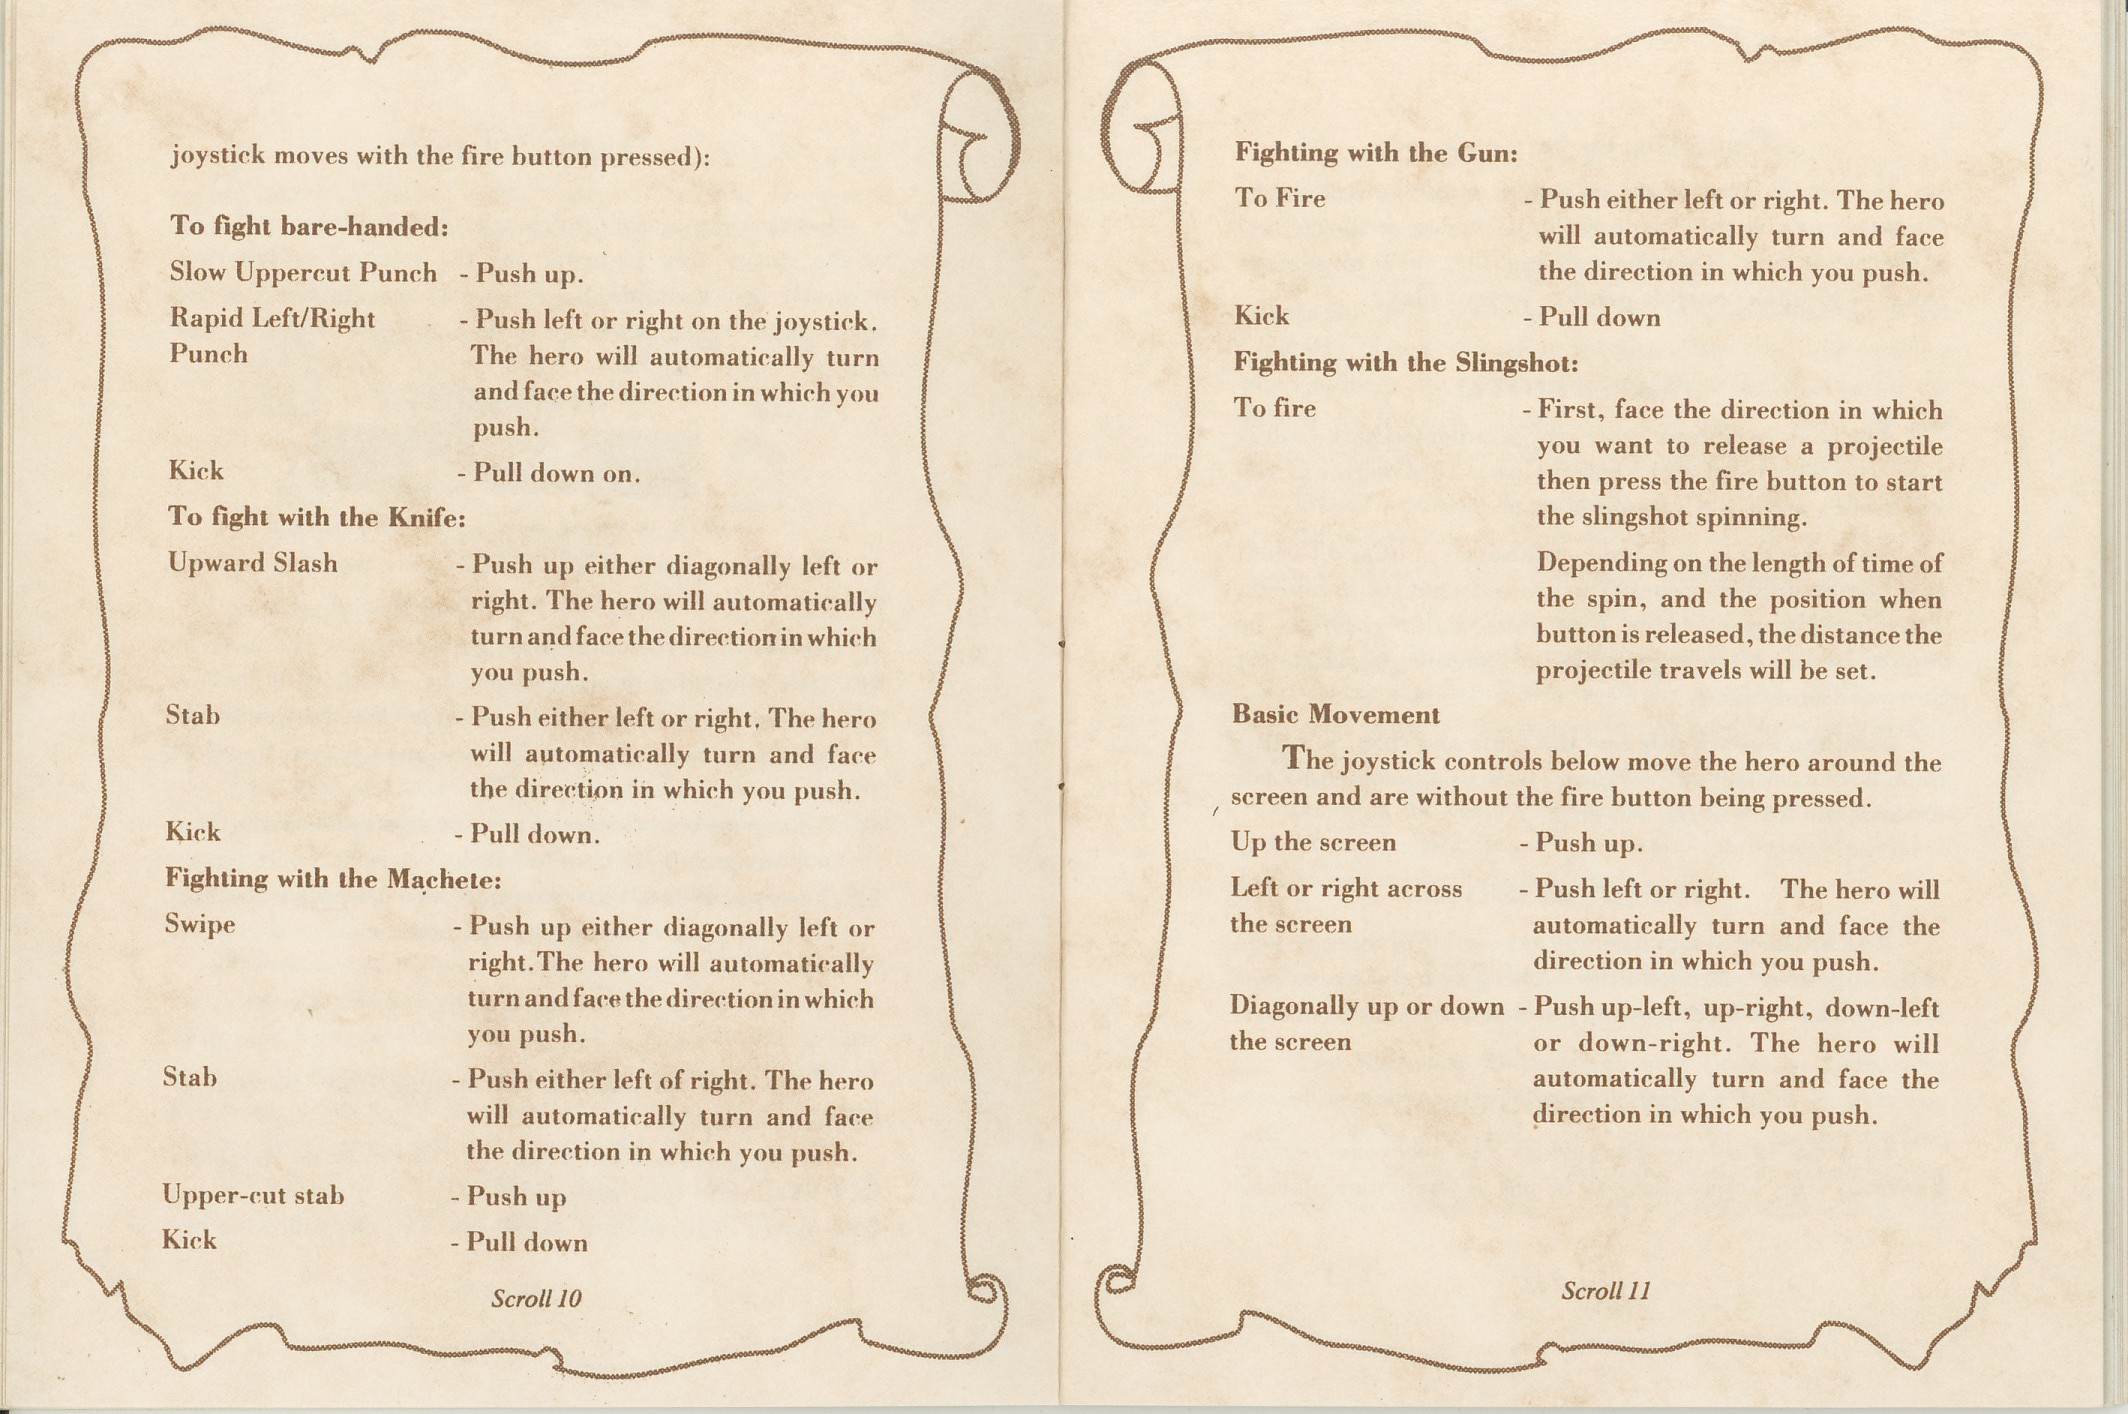 joystick moves with the fire button pressed):
To fight bare-handed:
Slow Uppercut Punch - Push up.
Rapid Left/Right - Push left or right on the joystick.
Punch The hero will automatically turn
and face the direction in which you
push.
Kick - Pull down on.
To fight with the Knife:
Upward Slash - Push up either diagonally left or
right. The hero will automatically
turn and face the direction in which
you push.
Stab - Push either left or right. The hero
will automatically turn and face
the direction in which you push.
Kick - Pull down.
Fighting with the Machete:
Swipe - Push up either diagonally left or
right.The hero will automatically
turn and face the direction in which
you push.
Stab - Push either left of right. The hero
will automatically turn and face
the direction in which you push.
Upper-cut stab - Push up
Kick - Pull down
Scroll 10
Fighting with the Gun:
To Fire - Push either left or right. The hero
will automatically turn and face
the direction in which you push.
Kick - Pull down
Fighting with the Slingshot:
To fire - First, face the direction in which
you want to release a projectile
then press the fire button to start
the slingshot spinning.
Depending on the length of time of
the spin, and the position when
button is released, the distance the
projectile travels will be set.
Basic Movement
The joystick controls below move the hero around the
screen and are without the fire button being pressed.
Up the screen - Push up.
Left or right across - Push left or right. The hero will
the screen automatically turn and face the
direction in which you push.
Diagonally up or down - Push up-left, up-right, down-left
the screen or down-right. The hero will
automatically turn and face the
direction in which you push.
Scroll 11